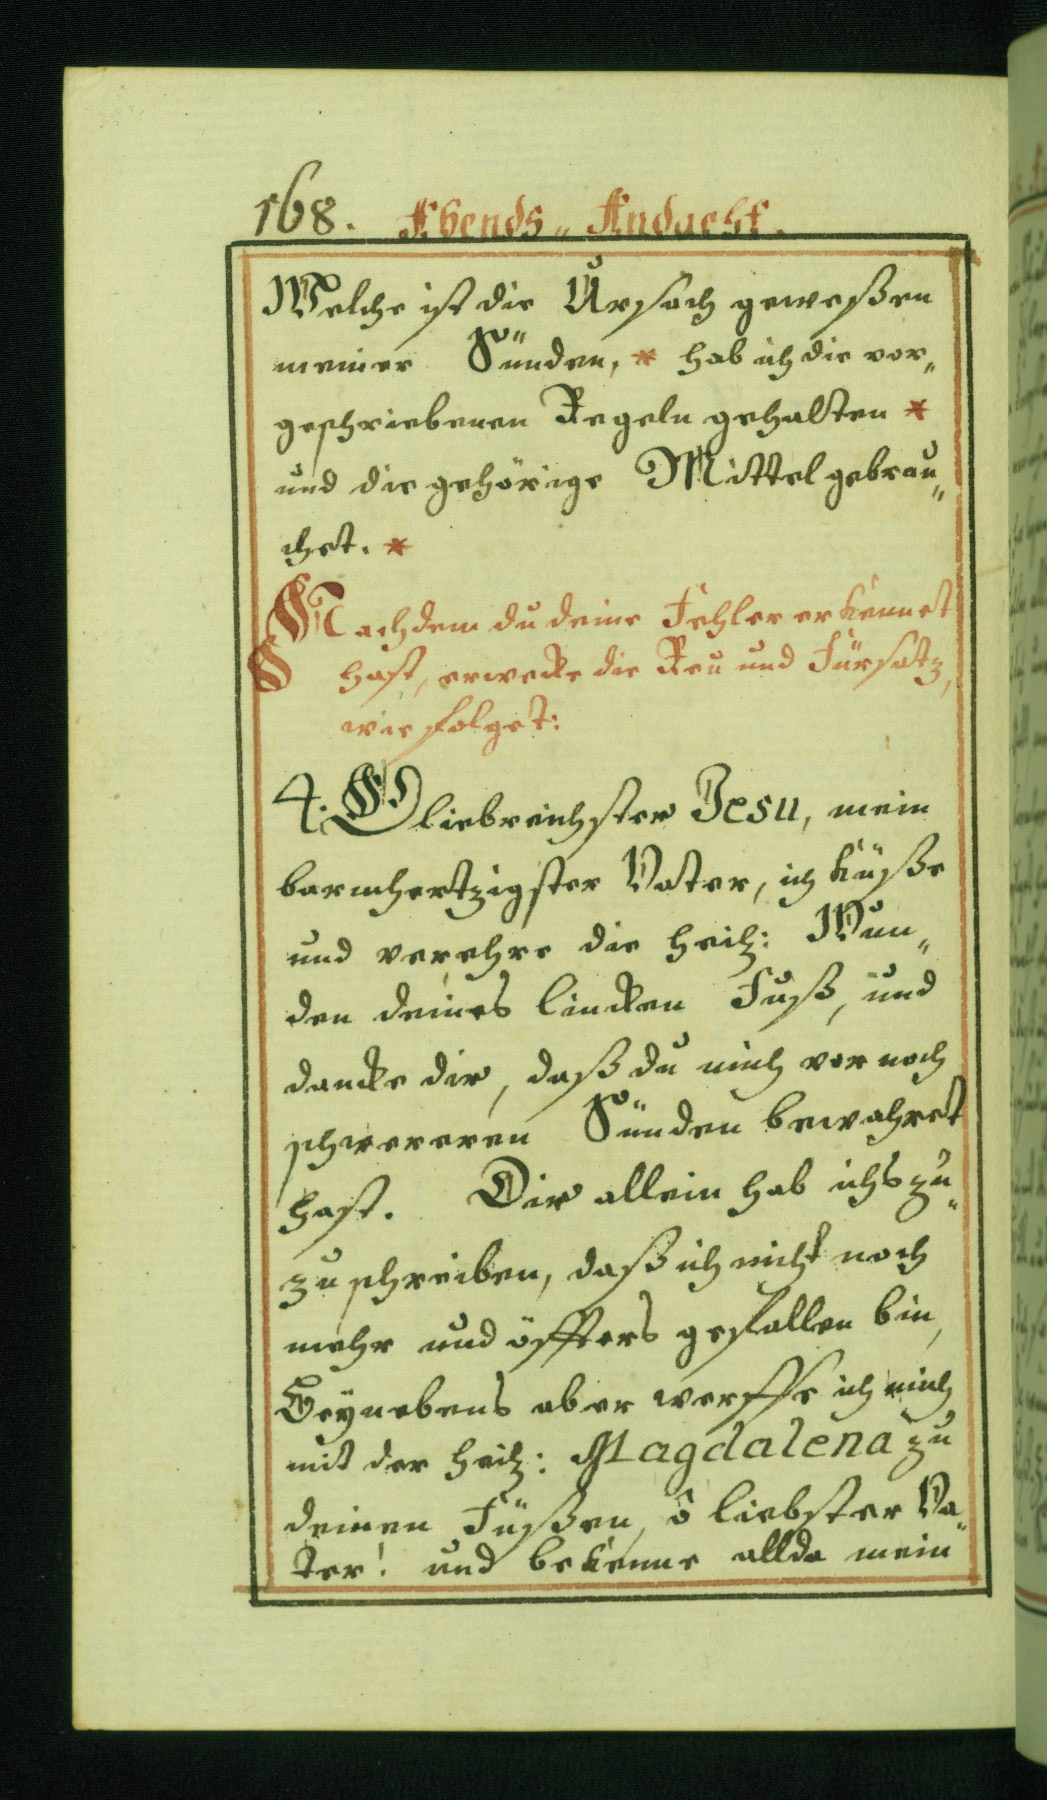 168. Abends„ Andacht.
Welche ist die Ursach geweßen
meiner Sünden, * hab ich die vor„
geschriebenen Regeln gehalten *
und die gehörige Mittel gebrau„
chet. *
Nachdem du deine Fehler erkennet
hast, erwecke die Reu und Fürsatz,
wie folget:
4. O liebreichster Jesu, mein
barmhertzigster Vater, ich küße
und verehre die heil: Wun„
den deines lincken Fuß, und
dancke dir, daß du mich vor noch
schwereren Sünden bewahret
hast. Dir allein hab ichs zu„
zuschreiben, daß ich nicht noch
mehr und öffters gefallen bin,
Beynebens aber werffe ich mich
mit der heil: Magdalena zu
deinen Füßen, ô liebster Va„
ter! und bekenne allda mein